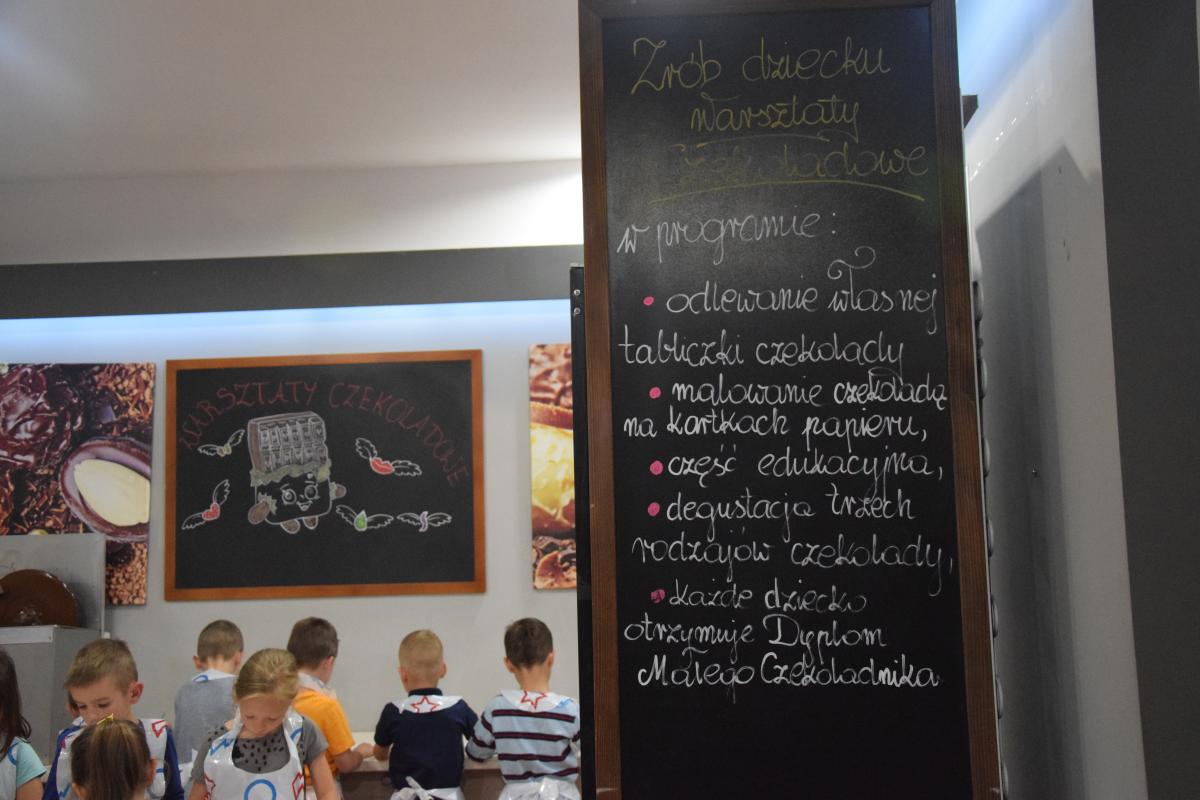 Zrób dziecku
Warsztaty
Czekoladowe
w programie:
• odlewanie własnej
tabliczki czekolady
• malowanie czekoladą
na kartkach papieru,
• część edukacyjna,
• degustacja trzech
rodzajów czekolady,
• każde dziecko
otrzymuje Dyplom
Małego Czekoladnika
WARSZTATY CZEKOLADOWE